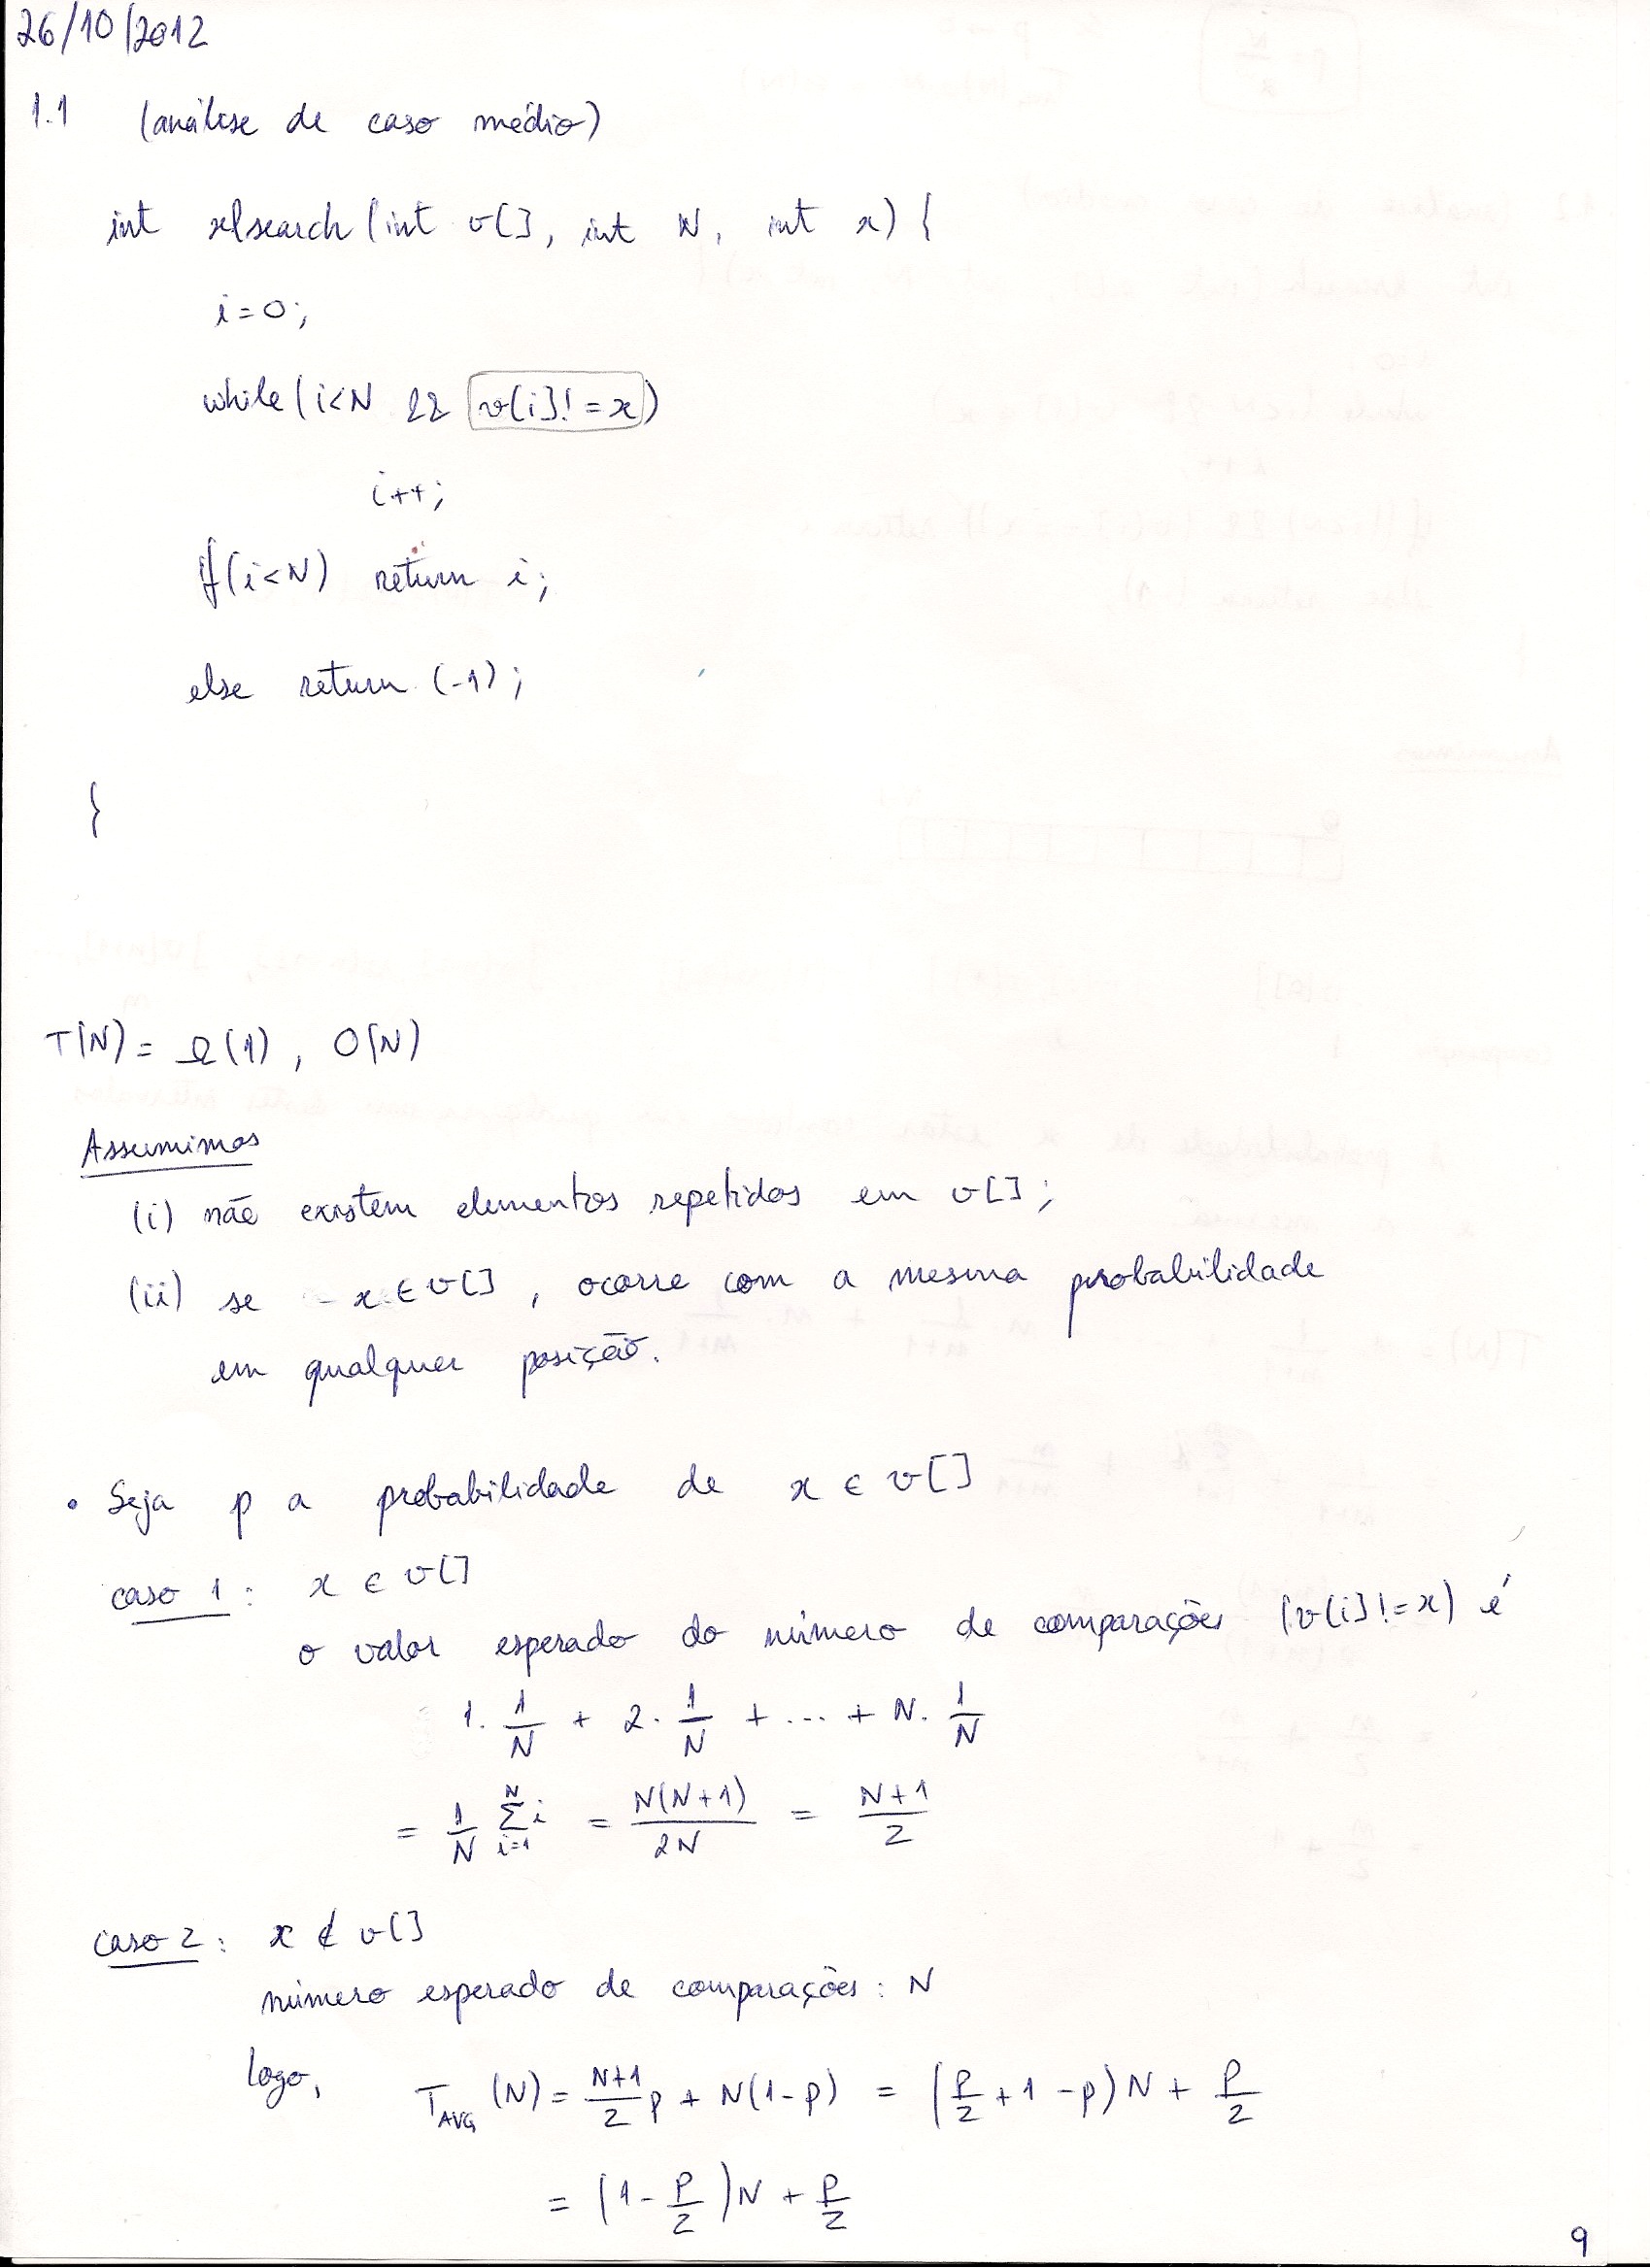 26/10/2012
1.1 (análise de caso médio)
int xlsearch (int v[], int N, int x) {
i=0;
while (i<N && v[i]!=x)
i++;
if (i<N) return i;
else return (-1);
}
T(N) = Ω(1), O(N)
Assumimos
(i) não existem elementos repetidos em v[];
(ii) se x ∈ v[], ocorre com a mesma probabilidade
em qualquer posição.
• Seja p a probabilidade de x ∈ v[]
caso 1: x ∈ v[]
o valor esperado do número de comparações (v[i]!=x) é
1. 1/N + 2. 1/N + ... + N. 1/N
= 1/N Σ_{i=1}^{N} i = N(N+1)/2N = N+1/2
caso 2: x ∉ v[]
número esperado de comparações: N
logo, T_AVG (N) = N+1/2 p + N(1-p) = (p/2 + 1 - p)N + p/2
= (1 - p/2)N + p/2
9